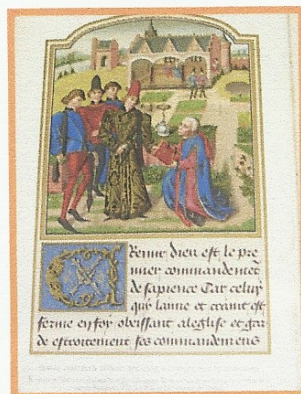 Cremir dieu est le pre
mier commandement
de sapience Car celuy
qui laime et craint est
ferme en foy obeissant a leglise et gar
de estroitement ses commandemens